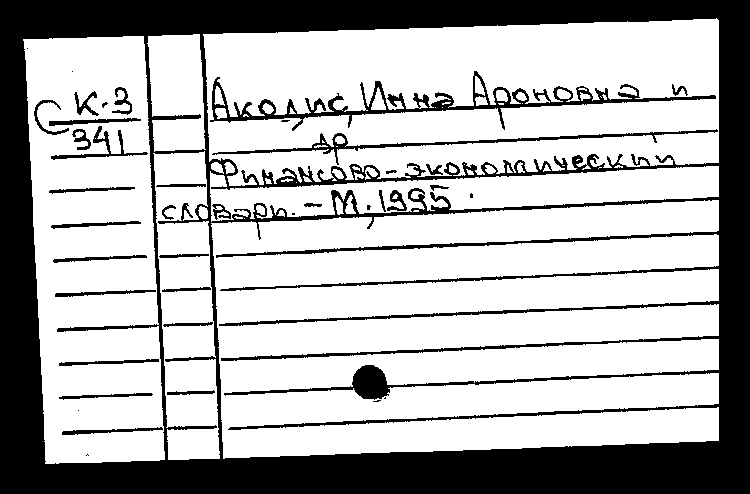 К-3
341
Акодис, Инна Ароновна и
др.
Финансово-экономический
словарь. - М., 1995.